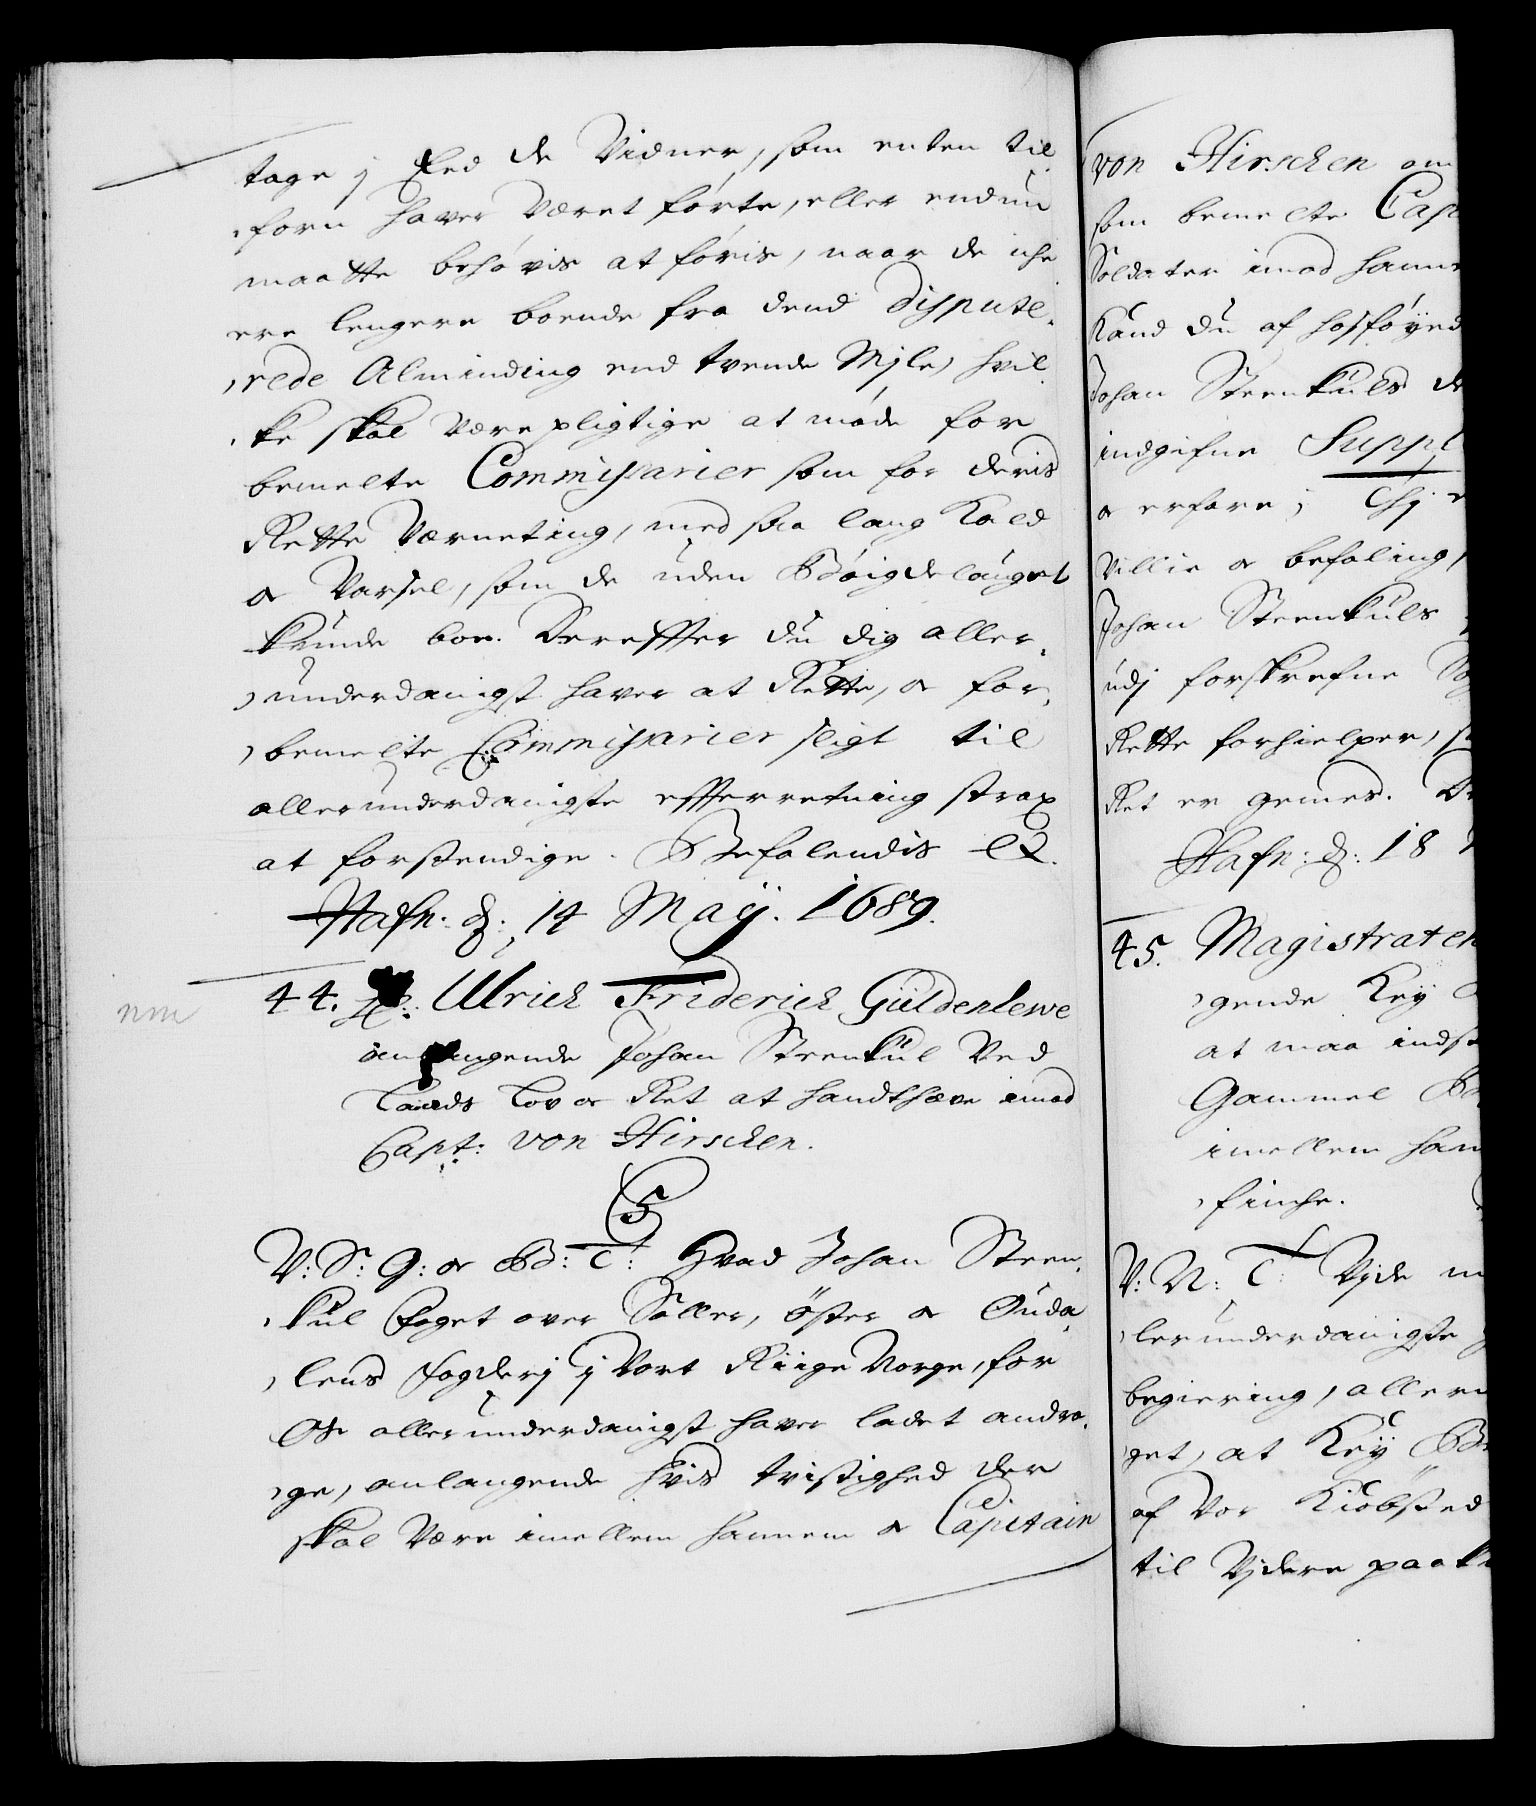 tage j Eed de Vidner, som enten til
forn hafver Været førte, eller endnu
maatte behøvis at føris, naar de iche
ere lengere boende fra dend Dispute,
rede Alminding end tvende Mjle, hvil
ke skal være pligtige at møde for
bemelte Commissarier som for deris
Rette Værneting, med saa lang Kald
oc Varsel, som de uden Bøigdelauget
kunde boe. Dereffter du dig aller,
underdanigst haver at Rette, oc for,
bemelte Commissarier sligt til
allerunderdanigste effterretning strax
at forstendige. Befalendis etc.
Hafn: d: 14 Maÿ. 1689.
nm
44. Ulrich Friderich Güldenlewe
anlangende Johan Steenkul Ved
Lands Lov oc Ret at handthæve imod
Capt: von Hirschen.
C5
V: S: G: oc Bd: T: Hvad Johan Steen,
kul Foget over Solløer, Öster oc Ouda,
lens Fogderj j Vort Riige Norge, for
Os allerunderdanigst haver ladet andra,
ge, anlangende hvis tvistighed der
skal Være imellem hannem oc Capitain
von Hirschen om
som bemelte Cap
Soldater imod hanne
Kand du af hosføyed
Johan Steenkuls de
indgifne Suppl
erfare; Thj e
Villie oc befaling,
Johan Steenkuls
udj forskrefne
Rette forhielper, s
Ret er gemes. D
Hafn: d: 18
45. Magistraten
gende Keÿ
at maa indst
Gammel
imellem han
finche.
V: N: T: Vjde m
lerunderdanigste
begiering, aller
get, at Keÿ
af Vor Kiöbsted
til Vjdere paa